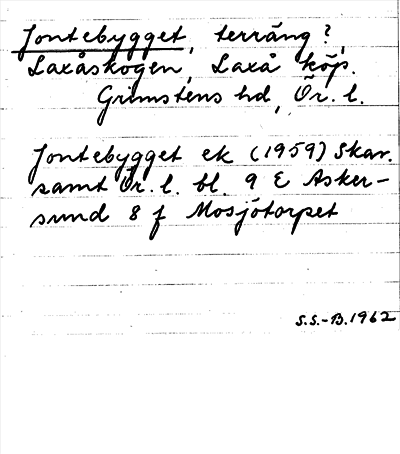 Jontebygget, terräng?,
Laxåskogen, Laxå köp.
Grimstens hd, Ör. l.
Jontebygget ek (1959) Skar.
samt Ör. l. bl. 9 E Asker-
sund 8 f Mosjötorpet
S.S.-B.1962